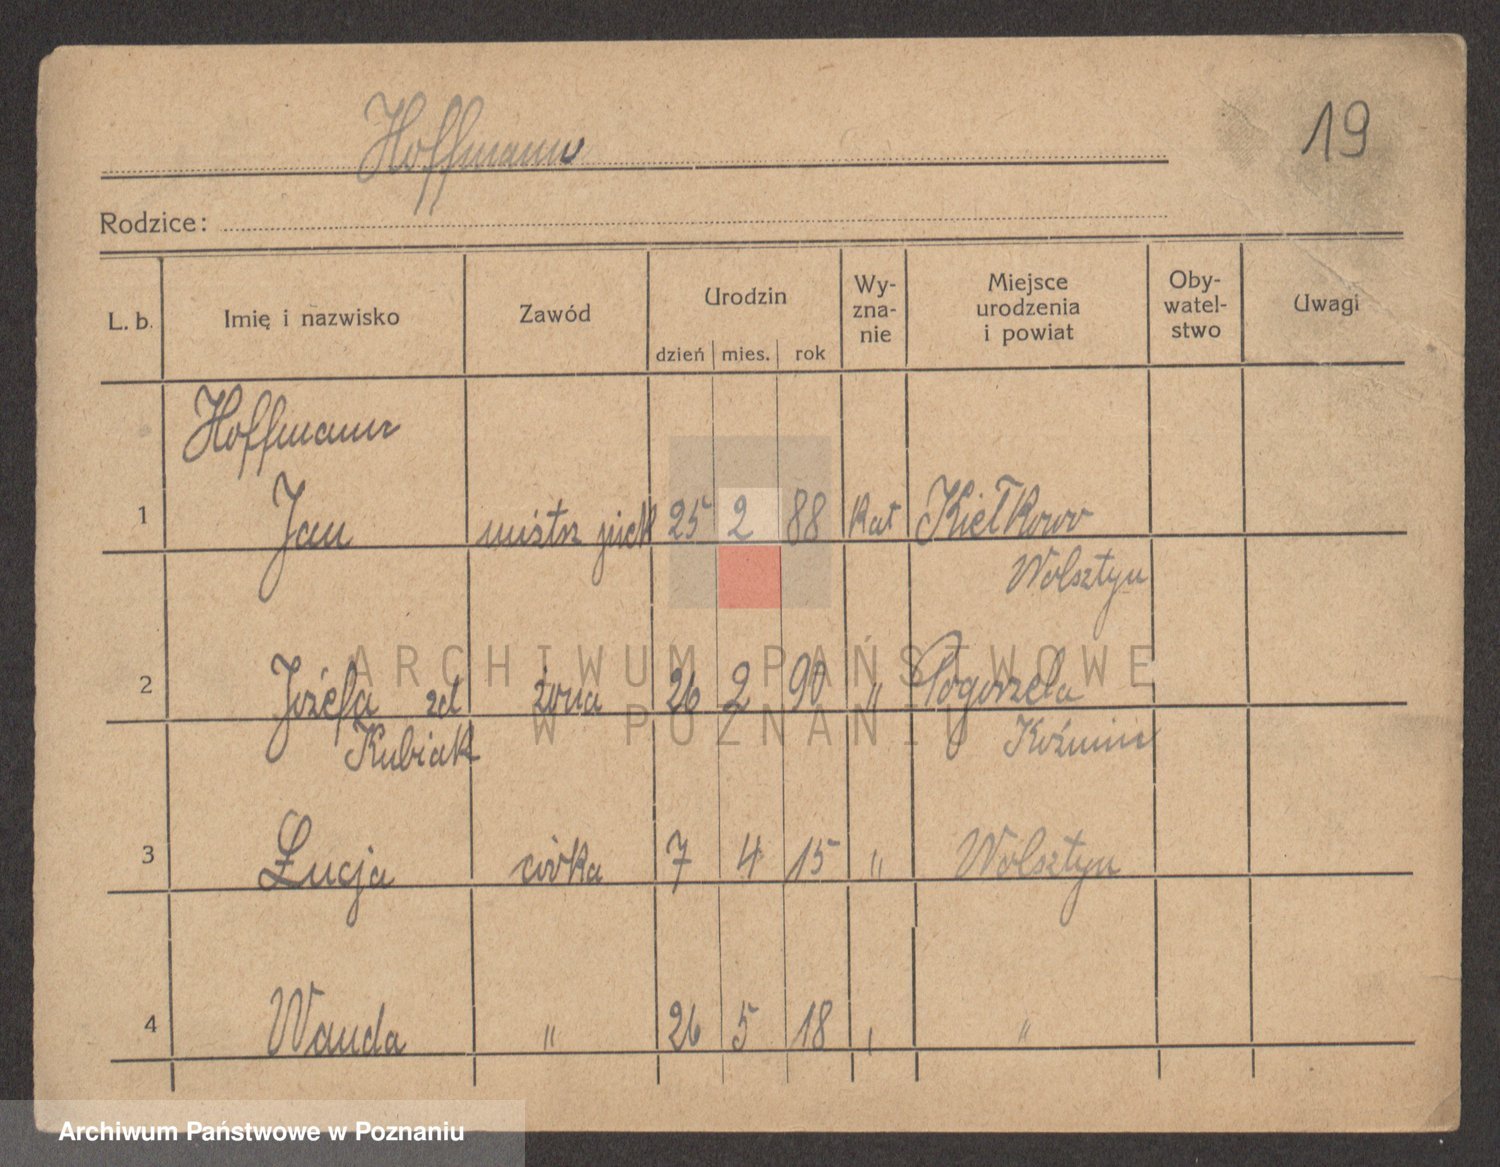 Hoffmann
19
Rodzice:
L. b. Imię i nazwisko Zawód Urodzin dzień mies. rok Wy-zna-nie Miejsce urodzenia i powiat Oby-watel-stwo Uwagi
Hoffmann
1 Jan mistrz piek 25 2 88 kat Kiełkowo
Wolsztyn
2 Józefa zd żona 26 2 90 " Pogorzela
Kubiak Koźmin
3 Łucja córka 7 4 15 " Wolsztyn
4 Wanda " 26 5 18 " "
ARCHIWUM PAŃSTWOWE
W POZNANIU
Archiwum Państwowe w Poznaniu